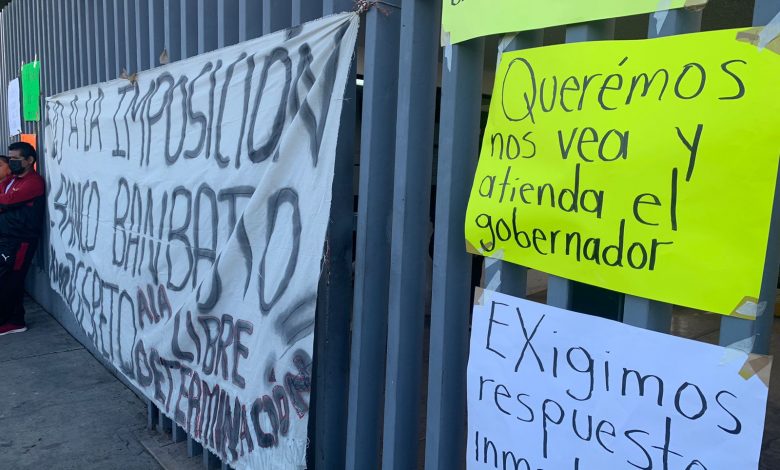 NO A LA IMPOSICION
BANCO BANBAJO
RESPETO A LA
LIBRE
DETERMINACIÓN
Querémos
nos vea y
atienda el
gobernador
EXigimos
respuesta